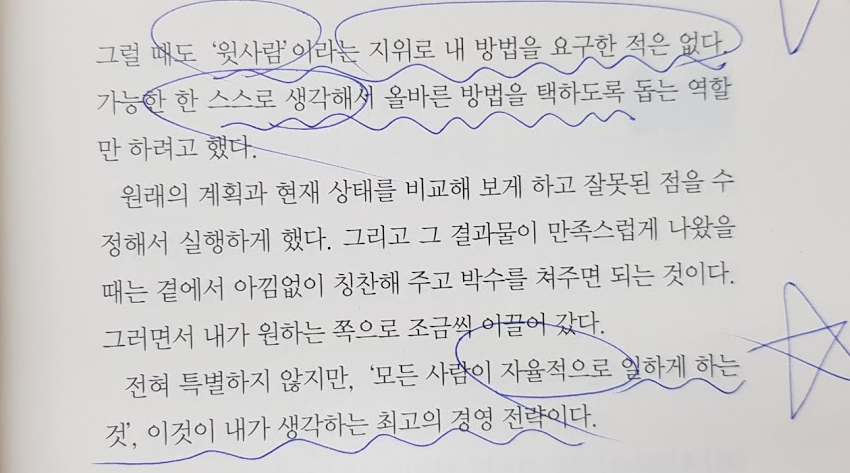 그럴 때도 ‘윗사람’이라는 지위로 내 방법을 요구한 적은 없다.
가능한 한 스스로 생각해서 올바른 방법을 택하도록 돕는 역할
만 하려고 했다.
원래의 계획과 현재 상태를 비교해 보게 하고 잘못된 점을 수
정해서 실행하게 했다. 그리고 그 결과물이 만족스럽게 나왔을
때는 곁에서 아낌없이 칭찬해 주고 박수를 쳐주면 되는 것이다.
그러면서 내가 원하는 쪽으로 조금씩 이끌어 갔다.
전혀 특별하지 않지만, ‘모든 사람이 자율적으로 일하게 하는
것’, 이것이 내가 생각하는 최고의 경영 전략이다.